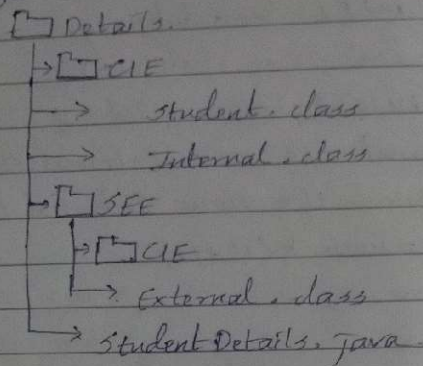 Details.
CIE
Student.class
Internal.class
SEE
CIE
External.class
StudentDetails.java